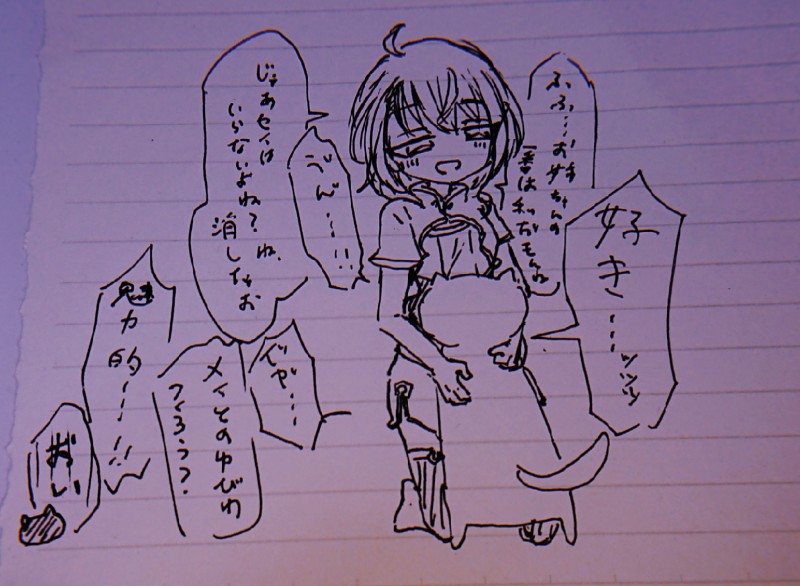 ふふ…お姉ちゃんの
一番は私だもんね
好き…ッッッ
じゃあセイは
いらないよね?ね、
消しちゃお
うん…!!
メイとのゆびわ
つくろう?
魅力的…!!
おい